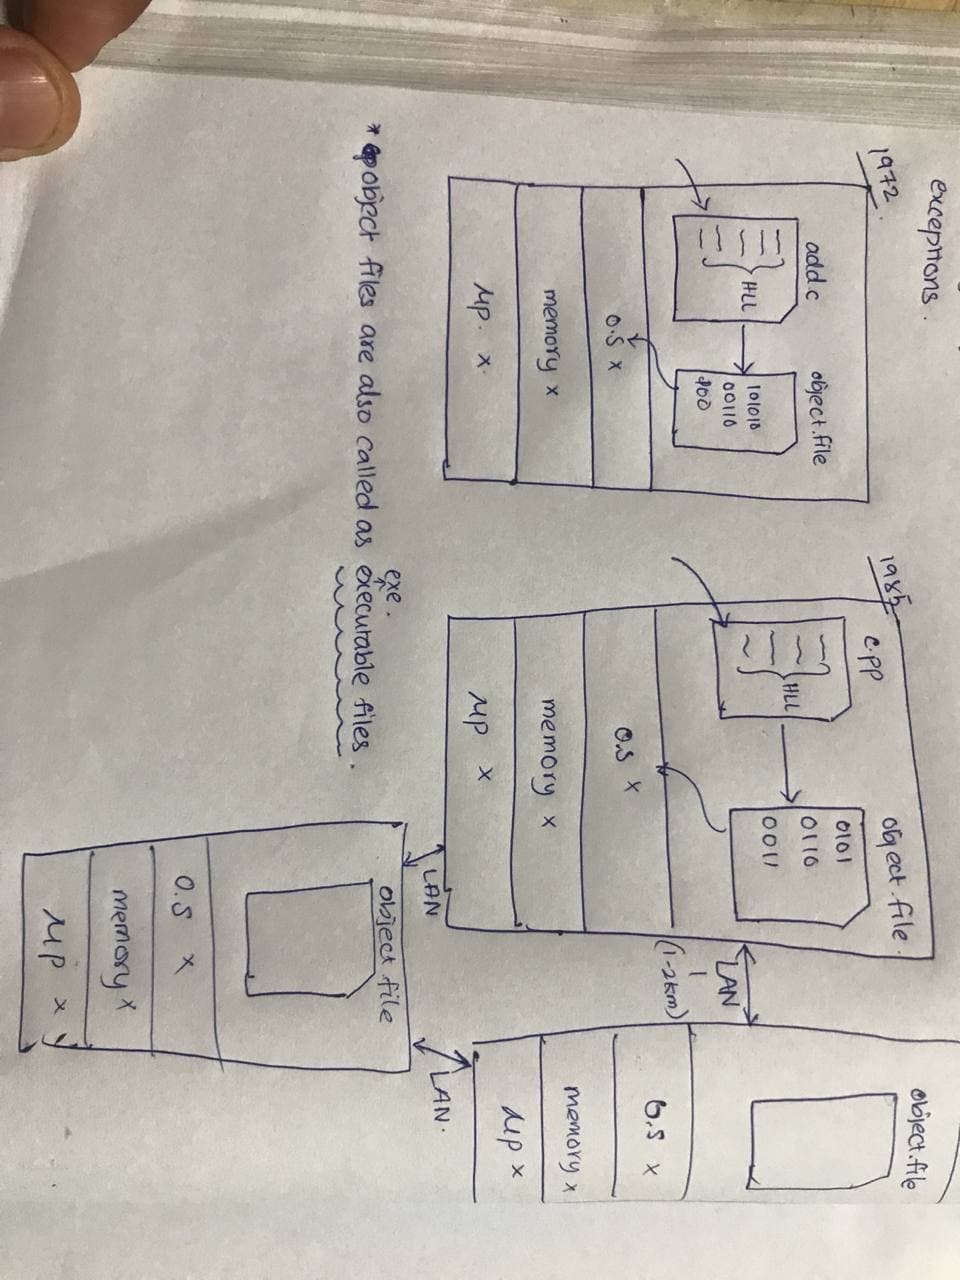 exceptions.
1972.
add.c
HLL
object.file
10101D
00110
O.S x
memory x
μp. x.
1985
c.pp
HLL
object.file.
0101
0110
0011
O.S x
memory x
μp x
LAN
(1-2km)
object.file
O.S x
memory x
μp x
LAN
object.file
O.S x
memory x
μp x
LAN.
exe.
* object files are also called as executable files.